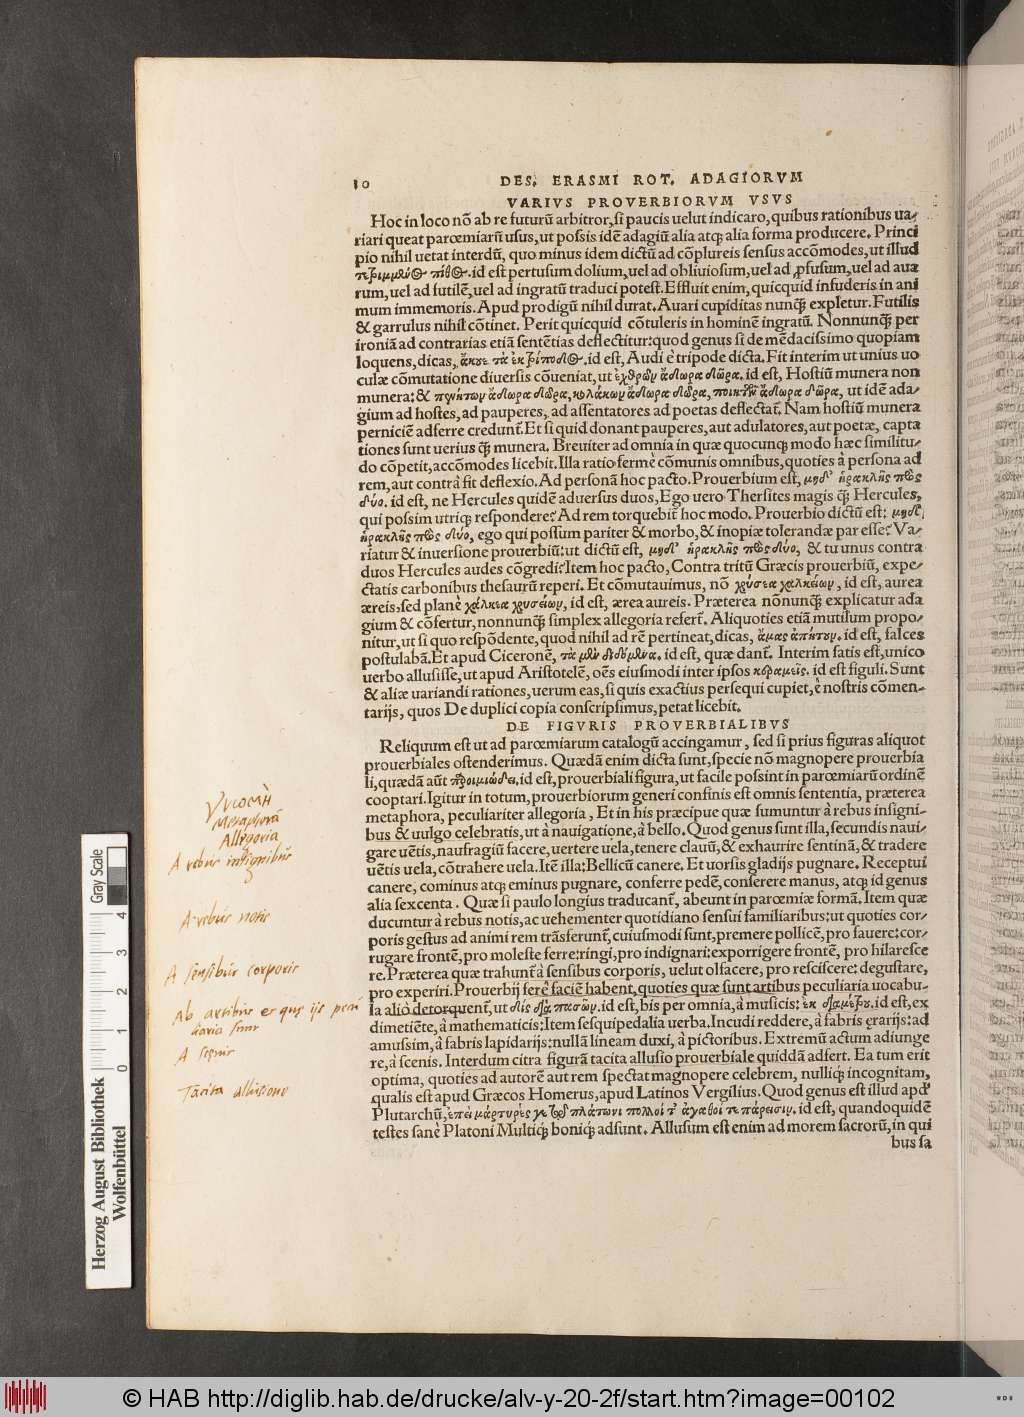 10 DES. ERASMI ROT. ADAGIORVM
VARIVS PROVERBIORVM VSVS
Hoc in loco nõ ab re futurũ arbitror, si paucis uelut indicaro, quibus rationibus ua-
riari queat parœmiarũ usus, ut possis idẽ adagiũ alia atq; alia forma producere. Princi
pio nihil uetat interdũ, quo minus idem dictũ ad cõplureis sensus accõmodes, ut illud
τετριμμένος πίθος. id est pertusum dolium, uel ad obliuiosum, uel ad ꝓfusum, uel ad aua
rum, uel ad futilẽ, uel ad ingratũ traduci potest. Effluit enim, quicquid infuderis in ani
mum immemoris. Apud prodigũ nihil durat. Auari cupiditas nunq̃ expletur. Futilis
& garrulus nihil cõtinet. Perit quicquid cõtuleris in hominẽ ingratũ. Nonnunq̃ per
ironiã ad contrarias etiã sentẽtias deflectitur: quod genus si de mẽdacissimo quopiam
loquens, dicas, ἄκουε τὰ ἐκ τρίποδος. id est, Audi e tripode dicta. Fit interim ut unius uo
culæ cõmutatione diuersis cõueniat, ut ἐχθρῶν ἄδωρα δῶρα. id est, Hostiũ munera non
munera: & πενήτων ἄδωρα δῶρα, κολάκων ἄδωρα δῶρα, ποιητῶν ἄδωρα δῶρα, ut idẽ ada-
gium ad hostes, ad pauperes, ad assentatores ad poetas deflectat̃. Nam hostiũ munera
perniciẽ adferre credunt̃. Et si quid donant pauperes, aut adulatores, aut poetæ, capta
tiones sunt uerius q̃ munera. Breuiter ad omnia in quæ quocunq; modo hæc similitu-
do cõpetit, accõmodes licebit. Illa ratio fermè cõmunis omnibus, quoties à persona ad
rem, aut contrà fit deflexio. Ad personã hoc pacto. Prouerbium est, μηδ᾽ ἡρακλῆς πρὸς
δύο. id est, ne Hercules quidẽ aduersus duos, Ego uero Thersites magis q̃ Hercules,
qui possim utriq; respondere? Ad rem torquebit̃ hoc modo. Prouerbio dictũ est: μηδ᾽
ἡρακλῆς πρὸς δύο, ego qui possum pariter & morbo, & inopiæ tolerandæ par esse? Va-
riatur & inuersione prouerbiũ: ut dictũ est, μηδ᾽ ἡρακλῆς πρὸς δύο, & tu unus contra
duos Hercules audes cõgredi? Item hoc pacto, Contra tritũ Græcis prouerbiũ, expe-
ctatis carbonibus thesaurũ reperi. Et cõmutauimus, nõ χρύσεα χαλκείων, id est, aurea
æreis, sed planè χάλκεα χρυσείων, id est, ærea aureis. Præterea nõnunq̃ explicatur ada
gium & cõfertur, nonnunq̃ simplex allegoria refert̃. Aliquoties etiã mutilum propo-
nitur, ut si quo respõdente, quod nihil ad rẽ pertineat, dicas, ἄμας ἀπῄτουν. id est, falces
postulabã. Et apud Ciceronẽ, τὰ μὲν διδόμενα. id est, quæ dant̃. Interim satis est, unico
uerbo allusisse, ut apud Aristotelẽ, oẽs eiusmodi inter ipsos κεραμεῖς. id est figuli. Sunt
& aliæ uariandi rationes, uerum eas, si quis exactius persequi cupiet, è nostris cõmen-
tarijs, quos De duplici copia conscripsimus, petat licebit.
DE FIGVRIS PROVERBIALIBVS
Reliquum est ut ad parœmiarum catalogũ accingamur, sed si prius figuras aliquot
prouerbiales ostenderimus. Quædã enim dicta sunt, specie nõ magnopere prouerbia
li, quædã aũt παροιμιώδει. id est, prouerbiali figura, ut facile possint in parœmiarũ ordinẽ
cooptari. Igitur in totum, prouerbiorum generi confinis est omnis sententia, præterea
metaphora, peculiariter allegoria, Et in his præcipue quæ sumuntur à rebus insigni-
bus & uulgo celebratis, ut à nauigatione, à bello. Quod genus sunt illa, secundis naui-
gare uẽtis, naufragiũ facere, uertere uela, tenere clauũ, & exhaurire sentinã, & tradere
uẽtis uela, cõtrahere uela. Itẽ illa: Bellicũ canere. Et uorsis gladijs pugnare. Receptui
canere, cominus atq; eminus pugnare, conferre pedẽ, conserere manus, atq; id genus
alia sexcenta. Quæ si paulo longius traducant̃, abeunt in parœmiæ formã. Item quæ
ducuntur à rebus notis, ac uehementer quotidiano sensui familiaribus: ut quoties cor-
poris gestus ad animi rem trãsferunt̃, cuiusmodi sunt, premere pollicẽ, pro fauere: cor-
rugare frontẽ, pro moleste ferre: ringi, pro indignari: exporrigere frontẽ, pro hilaresce
re. Præterea quæ trahunt̃ à sensibus corporis, uelut olfacere, pro resciscere: degustare,
pro experiri. Prouerbij ferè faciẽ habent, quoties quæ sunt artibus peculiaria uocabu-
la aliò detorquent̃, ut δὶς διὰ πασῶν. id est, bis per omnia, à musicis: ἐκ διαμέτρου. id est, ex
dimetiẽte, à mathematicis: Item sesquipedalia uerba. Incudi reddere, à fabris ęrarijs: ad
amussim, à fabris lapidarijs: nullã lineam duxi, à pictoribus. Extremũ actum adiunge
re, à scenis. Interdum citra figurã tacita allusio prouerbiale quiddã adfert. Ea tum erit
optima, quoties ad autorẽ aut rem spectat magnopere celebrem, nulliq; incognitam,
qualis est apud Græcos Homerus, apud Latinos Vergilius. Quod genus est illud apd̃
Plutarchũ, ἐπεὶ μάρτυρές γε τῷ πλάτωνι πολλοί τ᾽ ἀγαθοί τε πάρεισιν. id est, quandoquidẽ
testes sanè Platoni Multiq; boniq; adsunt. Allusum est enim ad morem sacrorũ, in qui
bus sa
Metaphorã
Allegoria
A rebus insignibus
A rebus notis
A sensibus corporis
Ab artibus et quę ijs pecu
liaria sunt
A scenis
Tacita allusione
Herzog August Bibliothek
Wolfenbüttel
Gray Scale
0 1 2 3 4
© HAB http://diglib.hab.de/drucke/alv-y-20-2f/start.htm?image=00102